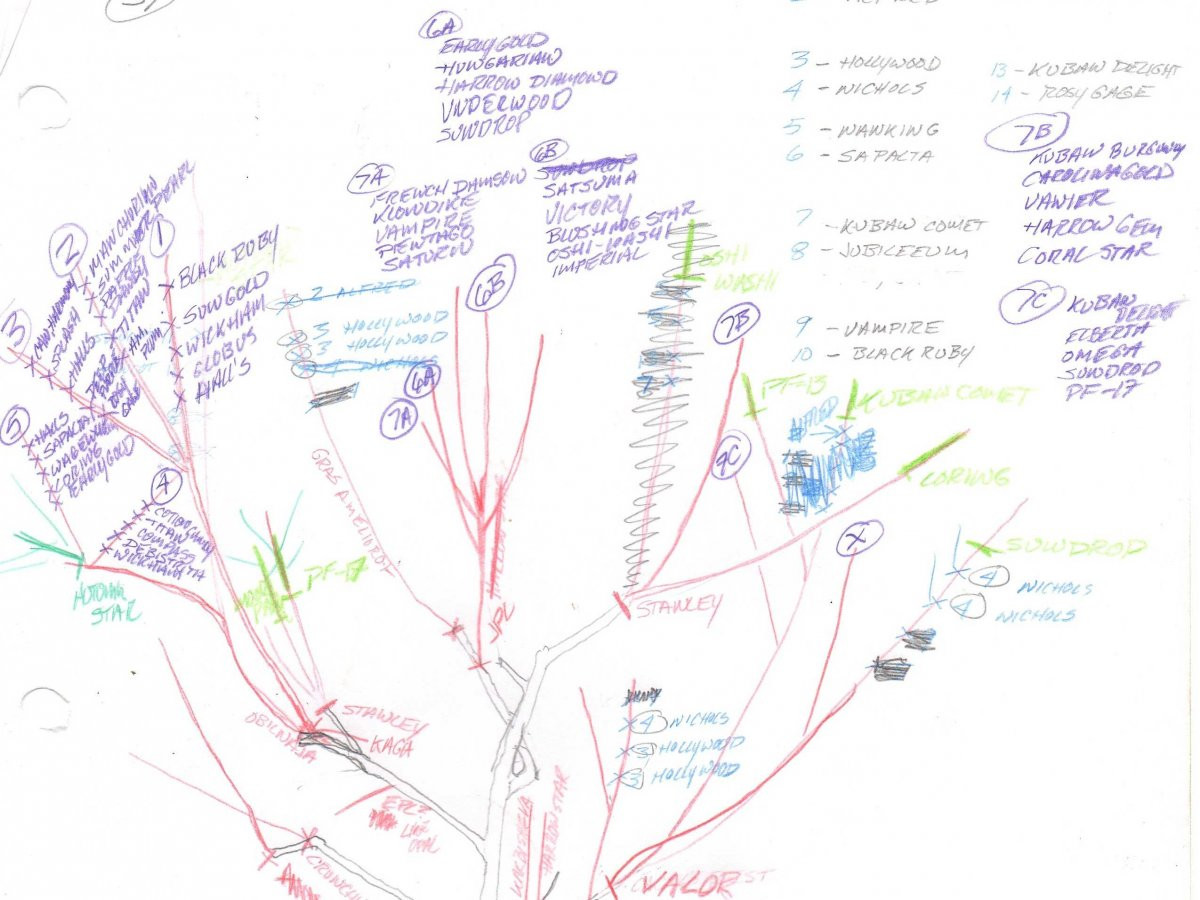 6A
EARLY GOLD
HUNGARIAN
HARROW DIAMOND
UNDERWOOD
SUNDROP
3 - HOLLYWOOD
4 - NICHOLS
5 - NANKING
6 - SAPALTA
7 - KUBAN COMET
8 - JUBILEEUM
9 - VAMPIRE
10 - BLACK RUBY
13 - KUBAN DELIGHT
14 - ROSY GAGE
7B
KUBAN BURGUNDY
CAROLINAGOLD
VANIER
HARROW GEM
CORAL STAR
7C
KUBAN
DELIGHT
ELBERTA
OMEGA
SUNDROP
PF-17
7A
FRENCH DAMSON
KLONDIKE
VAMPIRE
SATURN
6B
SUNDROP
SATSUMA
VICTORY
BLUSHING STAR
OSHI-WASHI
IMPERIAL
2
MANCHURIAN
SUMMER PEARL
TITAN
1
BLACK RUBY
SUNGOLD
WICKHAM
GLOBUS
HALL'S
3
SPLASH
HALLS
5
HALLS
SAPALTA
LORING
EARLYGOLD
4
TITAN
COMPASS
WICKHAM
2 ALFRED
3 HOLLYWOOD
3 HOLLYWOOD
4 NICHOLS
6B
6A
7A
OSHI
WASHI
7B
PF-13
ALFRED
KUBAN COMET
LORING
X
SUNDROP
4 NICHOLS
4 NICHOLS
STAR
PF-17
STANLEY
STANLEY
KAGA
OBILNAJA
4 NICHOLS
3 HOLLYWOOD
3 HOLLYWOOD
HARROW STAR
VALOR